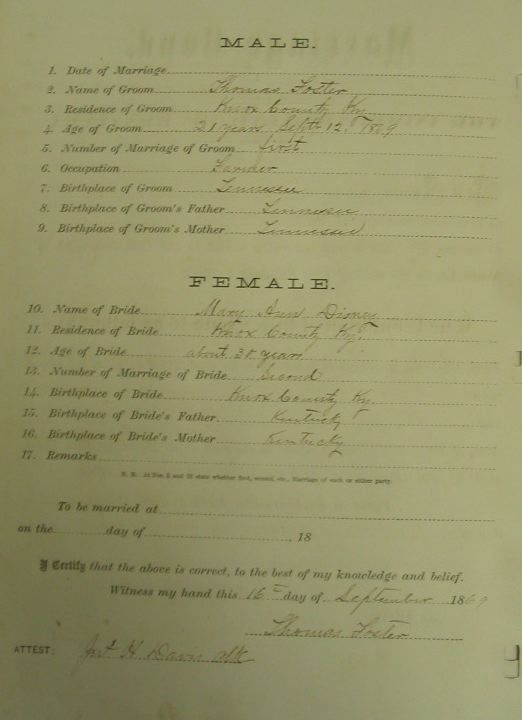 MALE.
1. Date of Marriage
2. Name of Groom Thomas Foster
3. Residence of Groom Knox County Ky
4. Age of Groom 21 years Sept. 12, 1869
5. Number of Marriage of Groom first
6. Occupation Farmer
7. Birthplace of Groom Tennessee
8. Birthplace of Groom's Father Tennessee
9. Birthplace of Groom's Mother Tennessee
FEMALE.
10. Name of Bride Mary Ann Disney
11. Residence of Bride Knox County Ky.
12. Age of Bride about 30 years
13. Number of Marriage of Bride Second
14. Birthplace of Bride Knox County Ky
15. Birthplace of Bride's Father Kentucky
16. Birthplace of Bride's Mother Kentucky
17. Remarks
N. B. At Nos. 5 and 13 state whether first, second, etc., Marriage of each or either party.
To be married at
on the day of , 18
I Certify that the above is correct, to the best of my knowledge and belief.
Witness my hand this 16 day of September 1869
Thomas Foster
ATTEST: H Davis